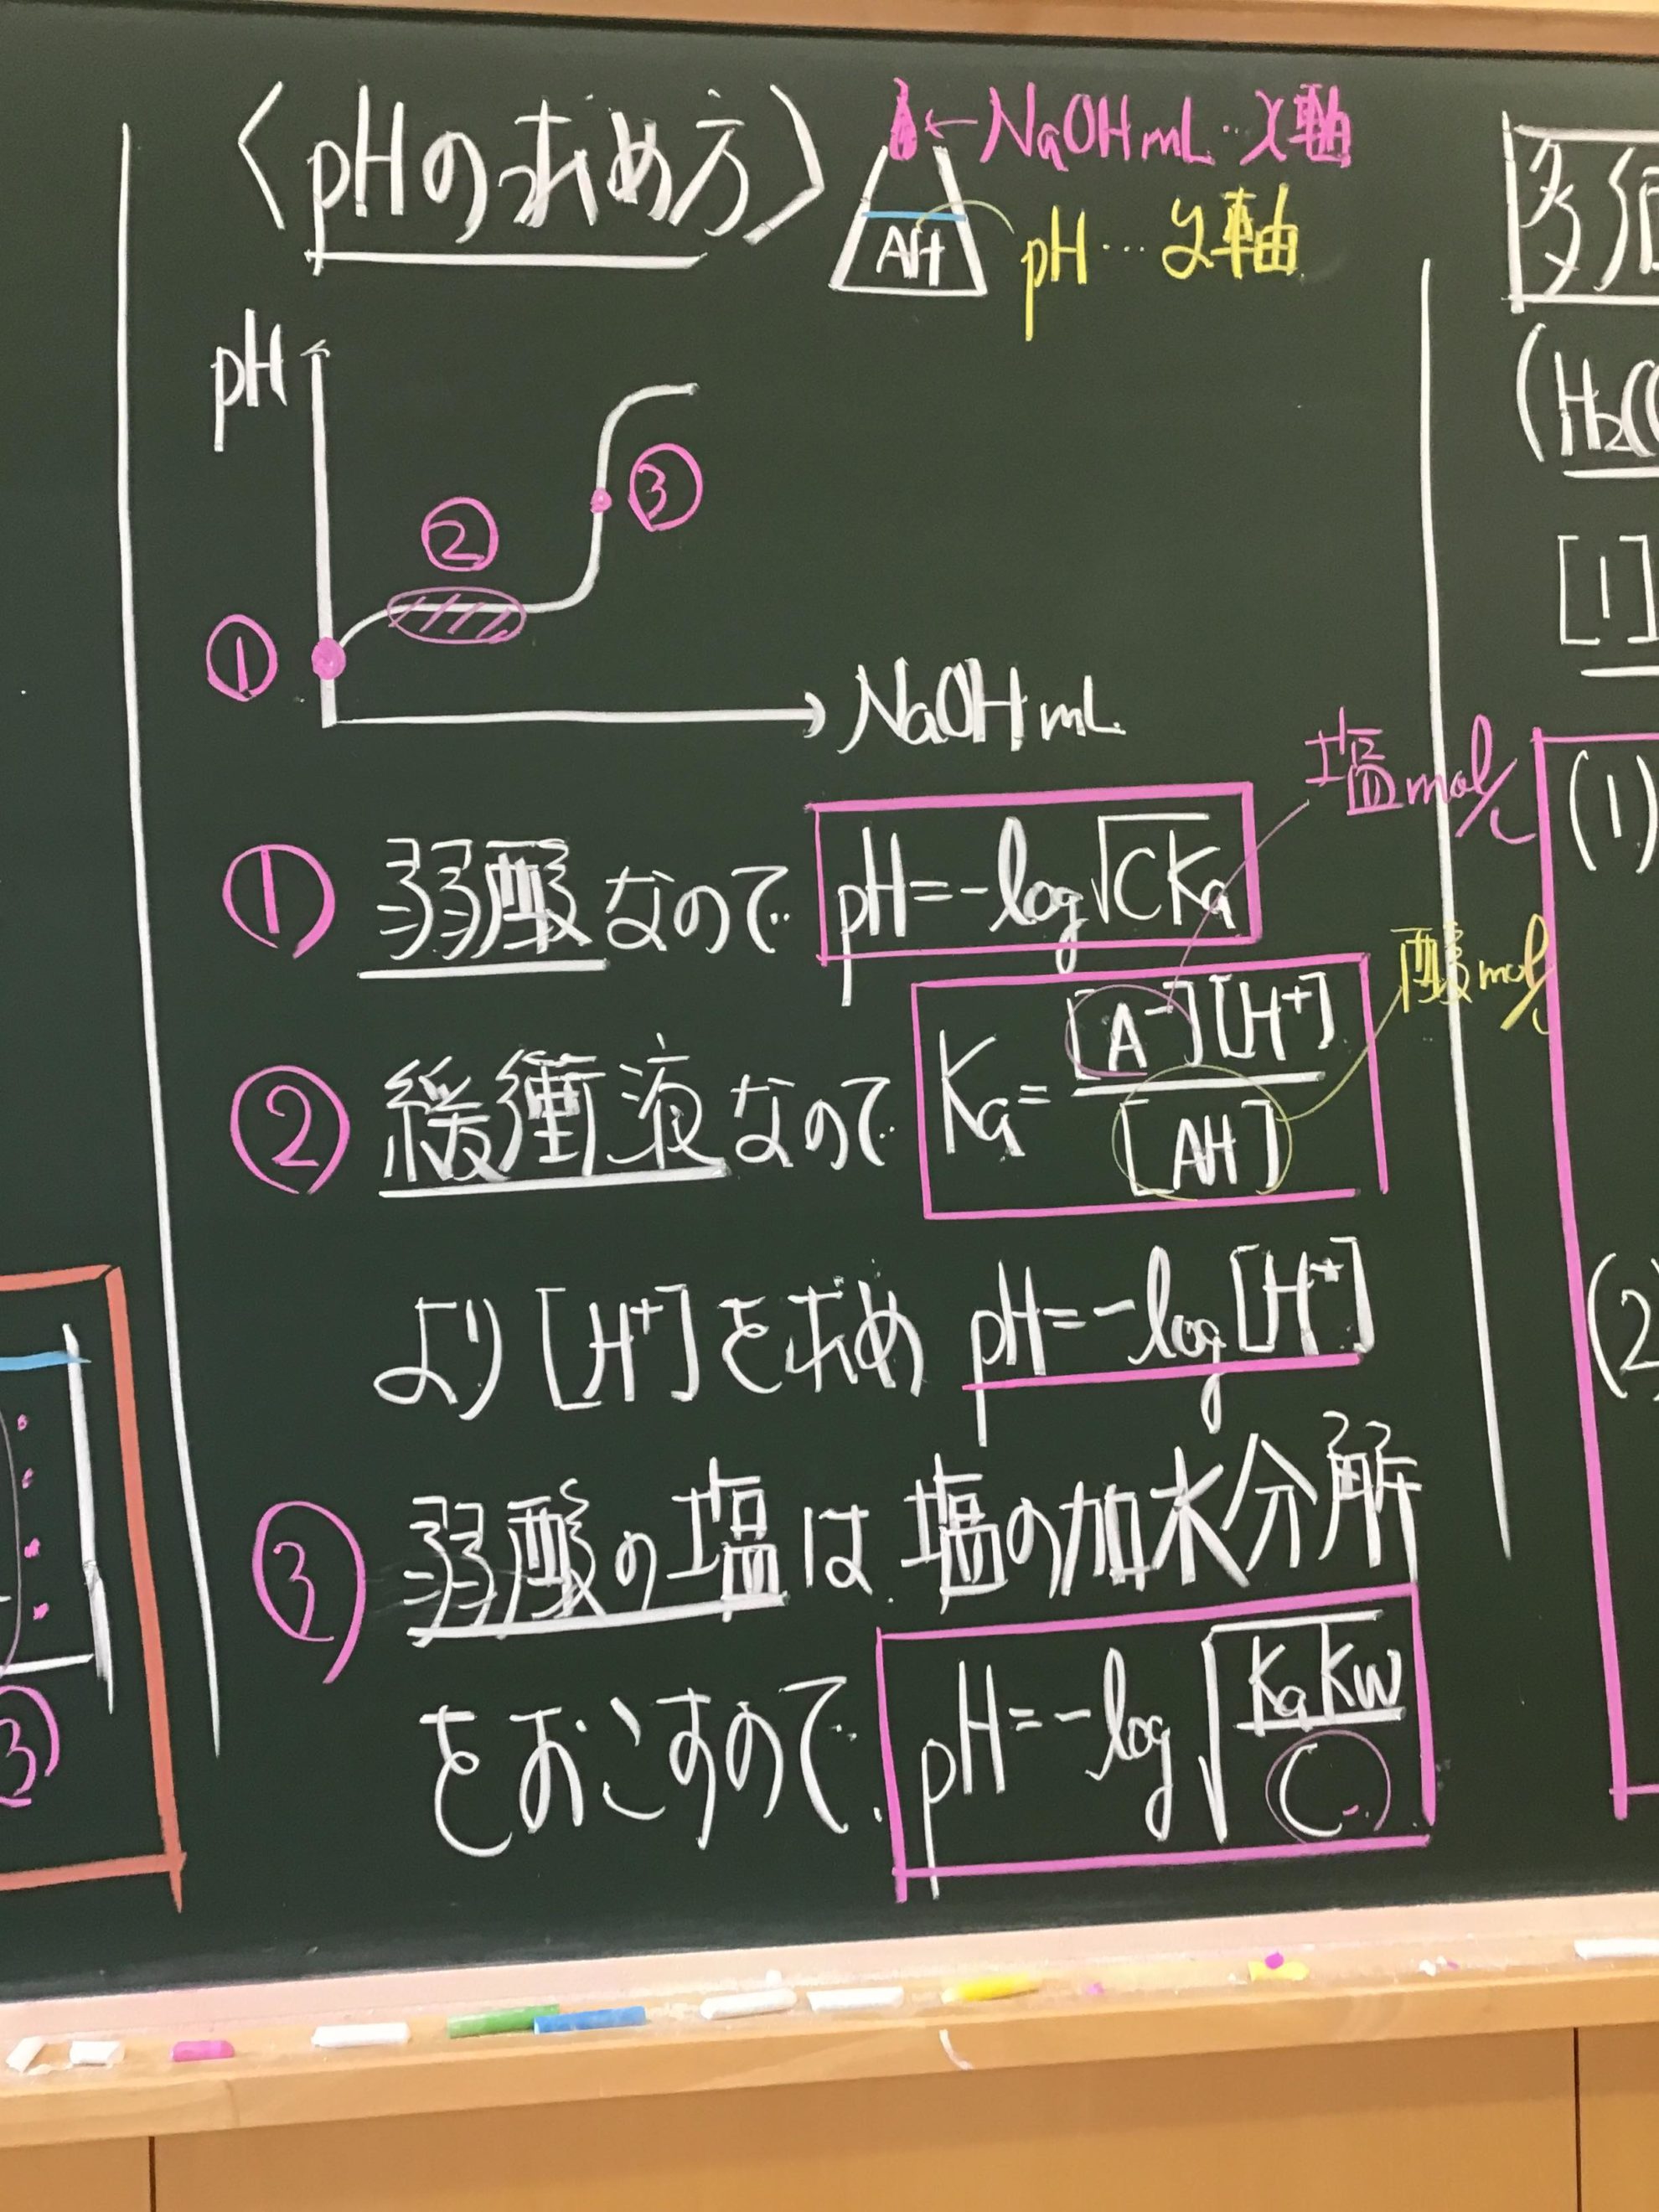 〈pHの求め方〉
←NaOH mL…x軸
AH
pH…y軸
pH
①
②
③
NaOH mL
① 弱酸なので pH=-log√CKa
塩mol/L
② 緩衝液なので Ka=[A⁻][H⁺]/[AH]
酸mol/L
より[H⁺]を求め pH=-log[H⁺]
③ 弱酸の塩は塩の加水分解
をおこすので pH=-log√KaKw/C
③
多
(H₂C
[1]
(1)
(2)